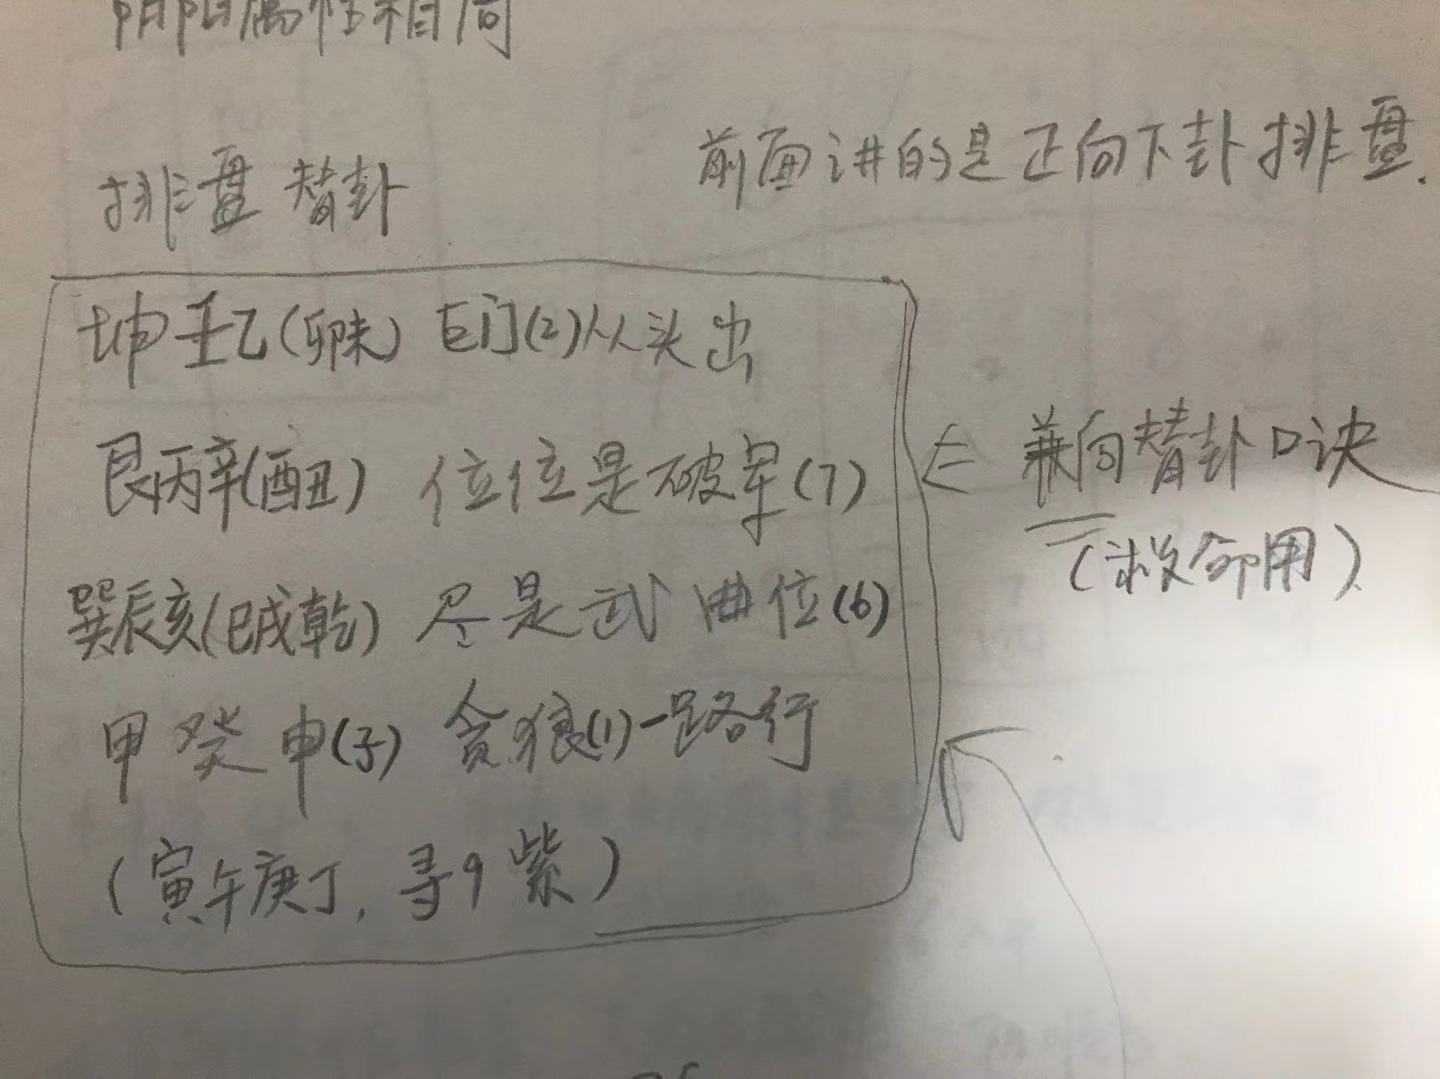 阴阳属性相同
前面讲的是正向下卦排盘.
排盘 替卦
坤壬乙(卯未) 巨门(2)从头出
艮丙辛(酉丑) 位位是破军(7)
巽辰亥(巳戌乾) 尽是武曲位(6)
甲癸申(子) 贪狼(1)一路行
(寅午庚丁, 寻9紫)
⇐ 兼向替卦口诀
(救命用)